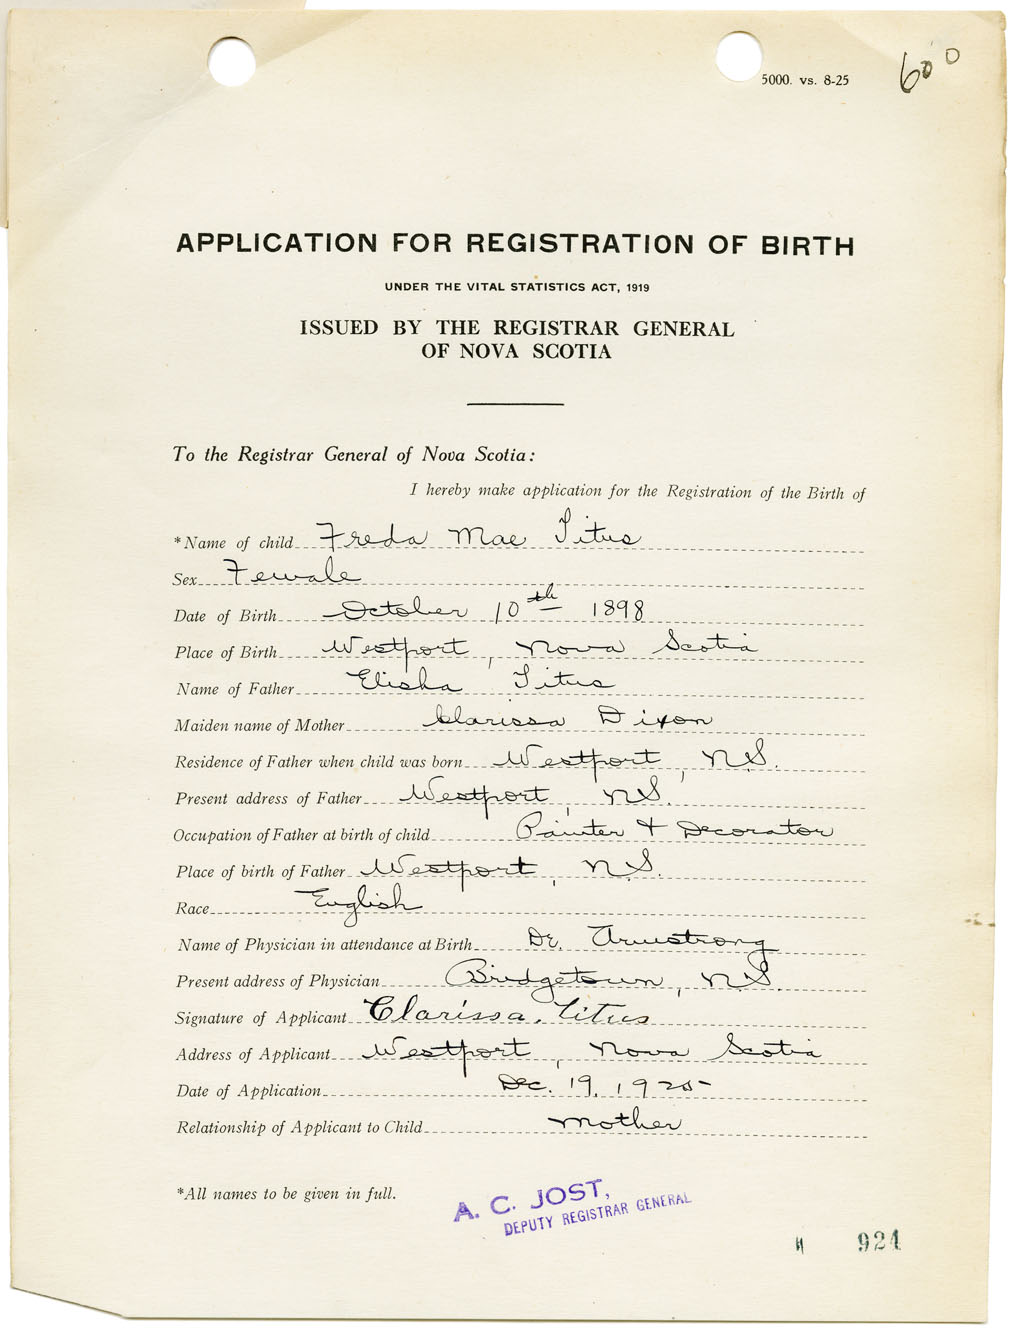 5000. vs. 8-25
600
APPLICATION FOR REGISTRATION OF BIRTH
UNDER THE VITAL STATISTICS ACT, 1919
ISSUED BY THE REGISTRAR GENERAL
OF NOVA SCOTIA
To the Registrar General of Nova Scotia:
I hereby make application for the Registration of the Birth of
*Name of child Freda Mae Titus
Sex Female
Date of Birth October 10th 1898
Place of Birth Westport, Nova Scotia
Name of Father Elisha Titus
Maiden name of Mother Clarissa Dixon
Residence of Father when child was born Westport, N.S.
Present address of Father Westport, N.S.
Occupation of Father at birth of child Painter & Decorator
Place of birth of Father Westport, N.S.
Race English
Name of Physician in attendance at Birth Dr. Armstrong
Present address of Physician Bridgetown, N.S.
Signature of Applicant Clarissa. Titus
Address of Applicant Westport, Nova Scotia
Date of Application Dec. 19, 1925
Relationship of Applicant to Child Mother
*All names to be given in full.
A. C. JOST,
DEPUTY REGISTRAR GENERAL
924